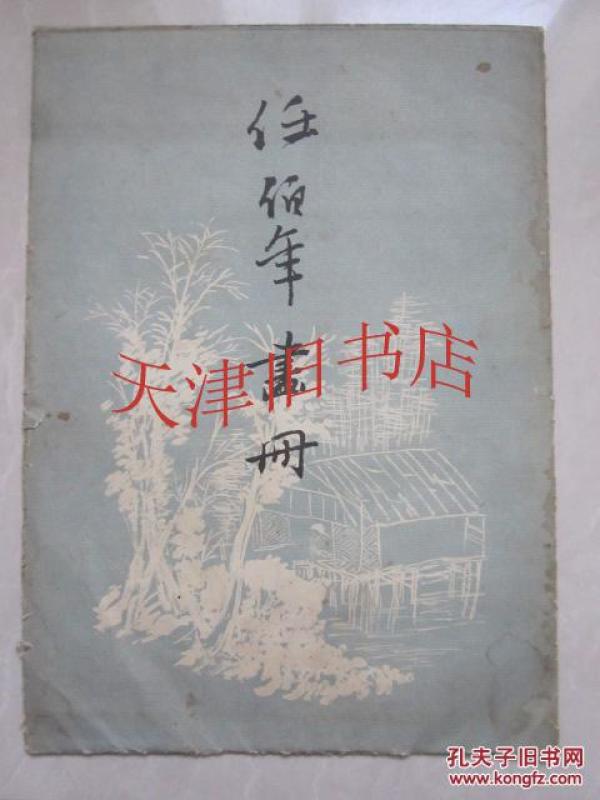 任伯年畫冊
天津旧书店
孔夫子旧书网
www.kongfz.com